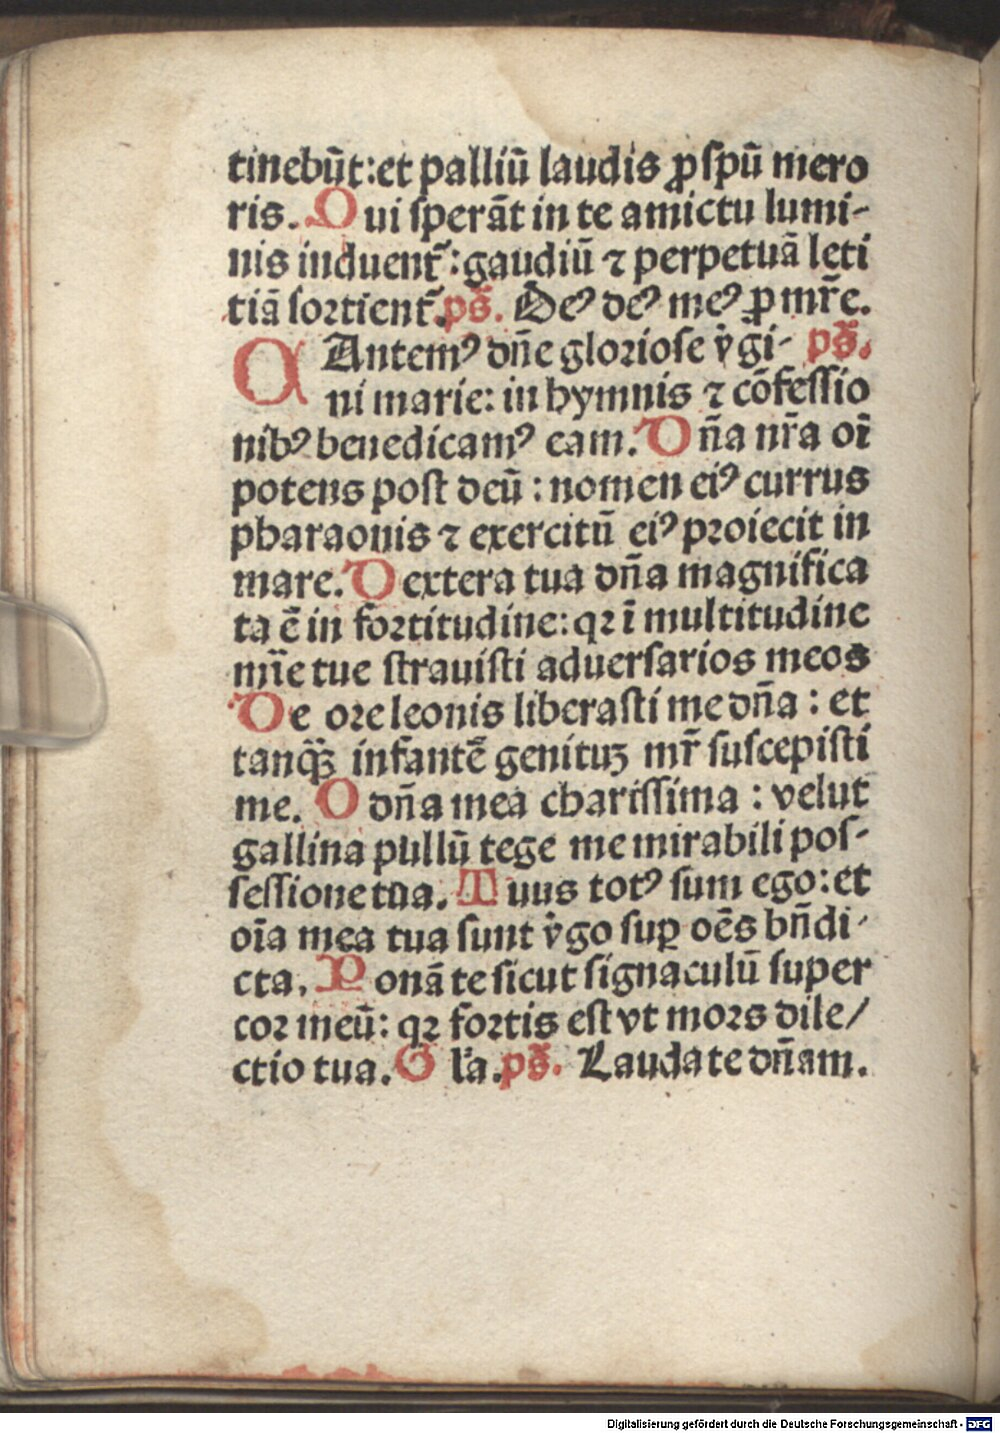 tinebūt: et palliū laudis ꝓ spū mero
ris. Qui sperāt in te amictu lumi-
nis induent᷑: gaudiū ⁊ perpetuā leti
tiā sortient᷑. ps̄. Deꝰ deꝰ meꝰ ꝓ mr̄e.
CAntemꝰ dn̄e gloriose v̾gi- ps̄.
ni marie: in hymnis ⁊ cōfessio
nibꝰ benedicamꝰ eam. Dn̄a nr̄a oī
potens post deū: nomen eiꝰ currus
pharaonis ⁊ exercitū eiꝰ proiecit in
mare. Dextera tua dn̄a magnifica
ta ē in fortitudine: qꝛ ī multitudine
mīe tue strauisti aduersarios meos
De ore leonis liberasti me dn̄a: et
tanqȝ̄ infantē genituꝫ mr̄ suscepisti
me. O dn̄a mea charissima: velut
gallina pullū tege me mirabili pos-
sessione tua. Tuus totꝰ sum ego: et
oīa mea tua sunt v̾go suꝑ oēs bn̄di-
cta. Ponā te sicut signaculū super
cor meū: qꝛ fortis est vt mors dile/
ctio tua. Gl'a. ps̄. Laudate dn̄am.
Digitalisierung gefördert durch die Deutsche Forschungsgemeinschaft - DFG